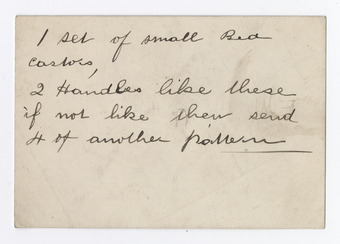 1 set of small Bed
castors,
2 Handles like these
if not like then send
4 of another pattern